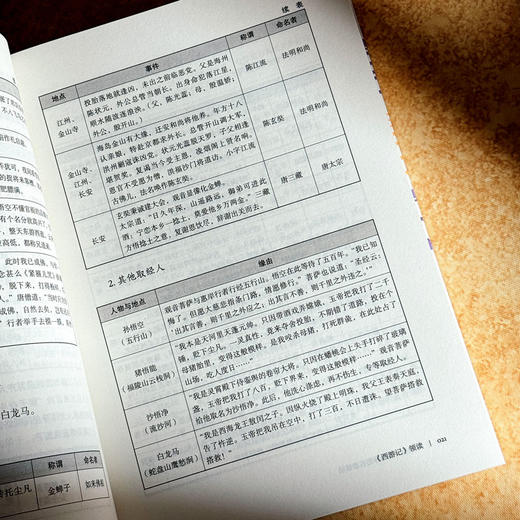 续 表
地点
事件
称谓
命名者
江州、
金山寺
投胎落地就逢凶，未出之前临恶党。父是海州
陈状元，外公总管当朝长。出身命犯落江星，
顺水随波逐浪泱。（父，陈光蕊；母，殷温娇；
外公，殷开山。）
陈江流
法明和尚
金山寺、
江州、
长安
海岛金山有大缘，迁安和尚将他养。年方十八
认亲娘，特赴京都求外长。总管开山调大军，
洪州剿寇诛凶党。状元光蕊脱天罗，子父相逢
堪贺奖。复谒当今受主恩，凌烟阁上贤名响。
恩官不受愿为僧，洪福沙门将道访。小字江流
古佛儿，法名唤作陈玄奘。
陈玄奘
法明和尚
长安
玄奘秉诚建大会，观音显像化金蝉。
太宗道：“日久年深，山遥路远，御弟可进此
酒；宁恋本乡一捻土，莫爱他乡万两金。”三藏
方悟捻土之意，复谢恩饮尽，辞谢出关而去。
唐三藏
唐太宗
2. 其他取经人
人物与地点
缘由
孙悟空
（五行山）
观音菩萨与惠岸行者行经五行山，悟空在此等待了五百年。“我已知
悔了。但愿大慈悲指条门路，情愿修行。”菩萨也说道：“圣经云：
‘出其言善，则千里之外应之；出其言不善，则千里之外违之。’”
猪悟能
（福陵山云栈洞）
“我本是天河里天蓬元帅。只因带酒戏弄嫦娥，玉帝把我打了二千
锤，贬下尘凡。一灵真性，竟来夺舍投胎，不期错了道路，投在个
母猪胎里，变得这般模样。是我咬杀母猪，打死群彘，在此处占了
山场，吃人度日……”
沙悟净
（流沙河）
“我是灵霄殿下侍銮舆的卷帘大将。只因在蟠桃会上失手打碎了玻璃
盏，玉帝把我打了八百，贬下界来，变得这般模样……”观音菩萨
给他取名为沙悟净。此后，他洗心涤虑，再不伤生，专等取经人。
白龙马
（蛇盘山鹰愁涧）
“我是西海龙王敖闰之子。因纵火烧了殿上明珠，我父王表奏天庭，
告了忤逆。玉帝把我吊在空中，打了三百，不日遭诛。望菩萨搭救
搭救！”
《西游记》领读 | 021
白龙马。
称谓
命名者
转托尘凡
金蝉子
如来佛祖